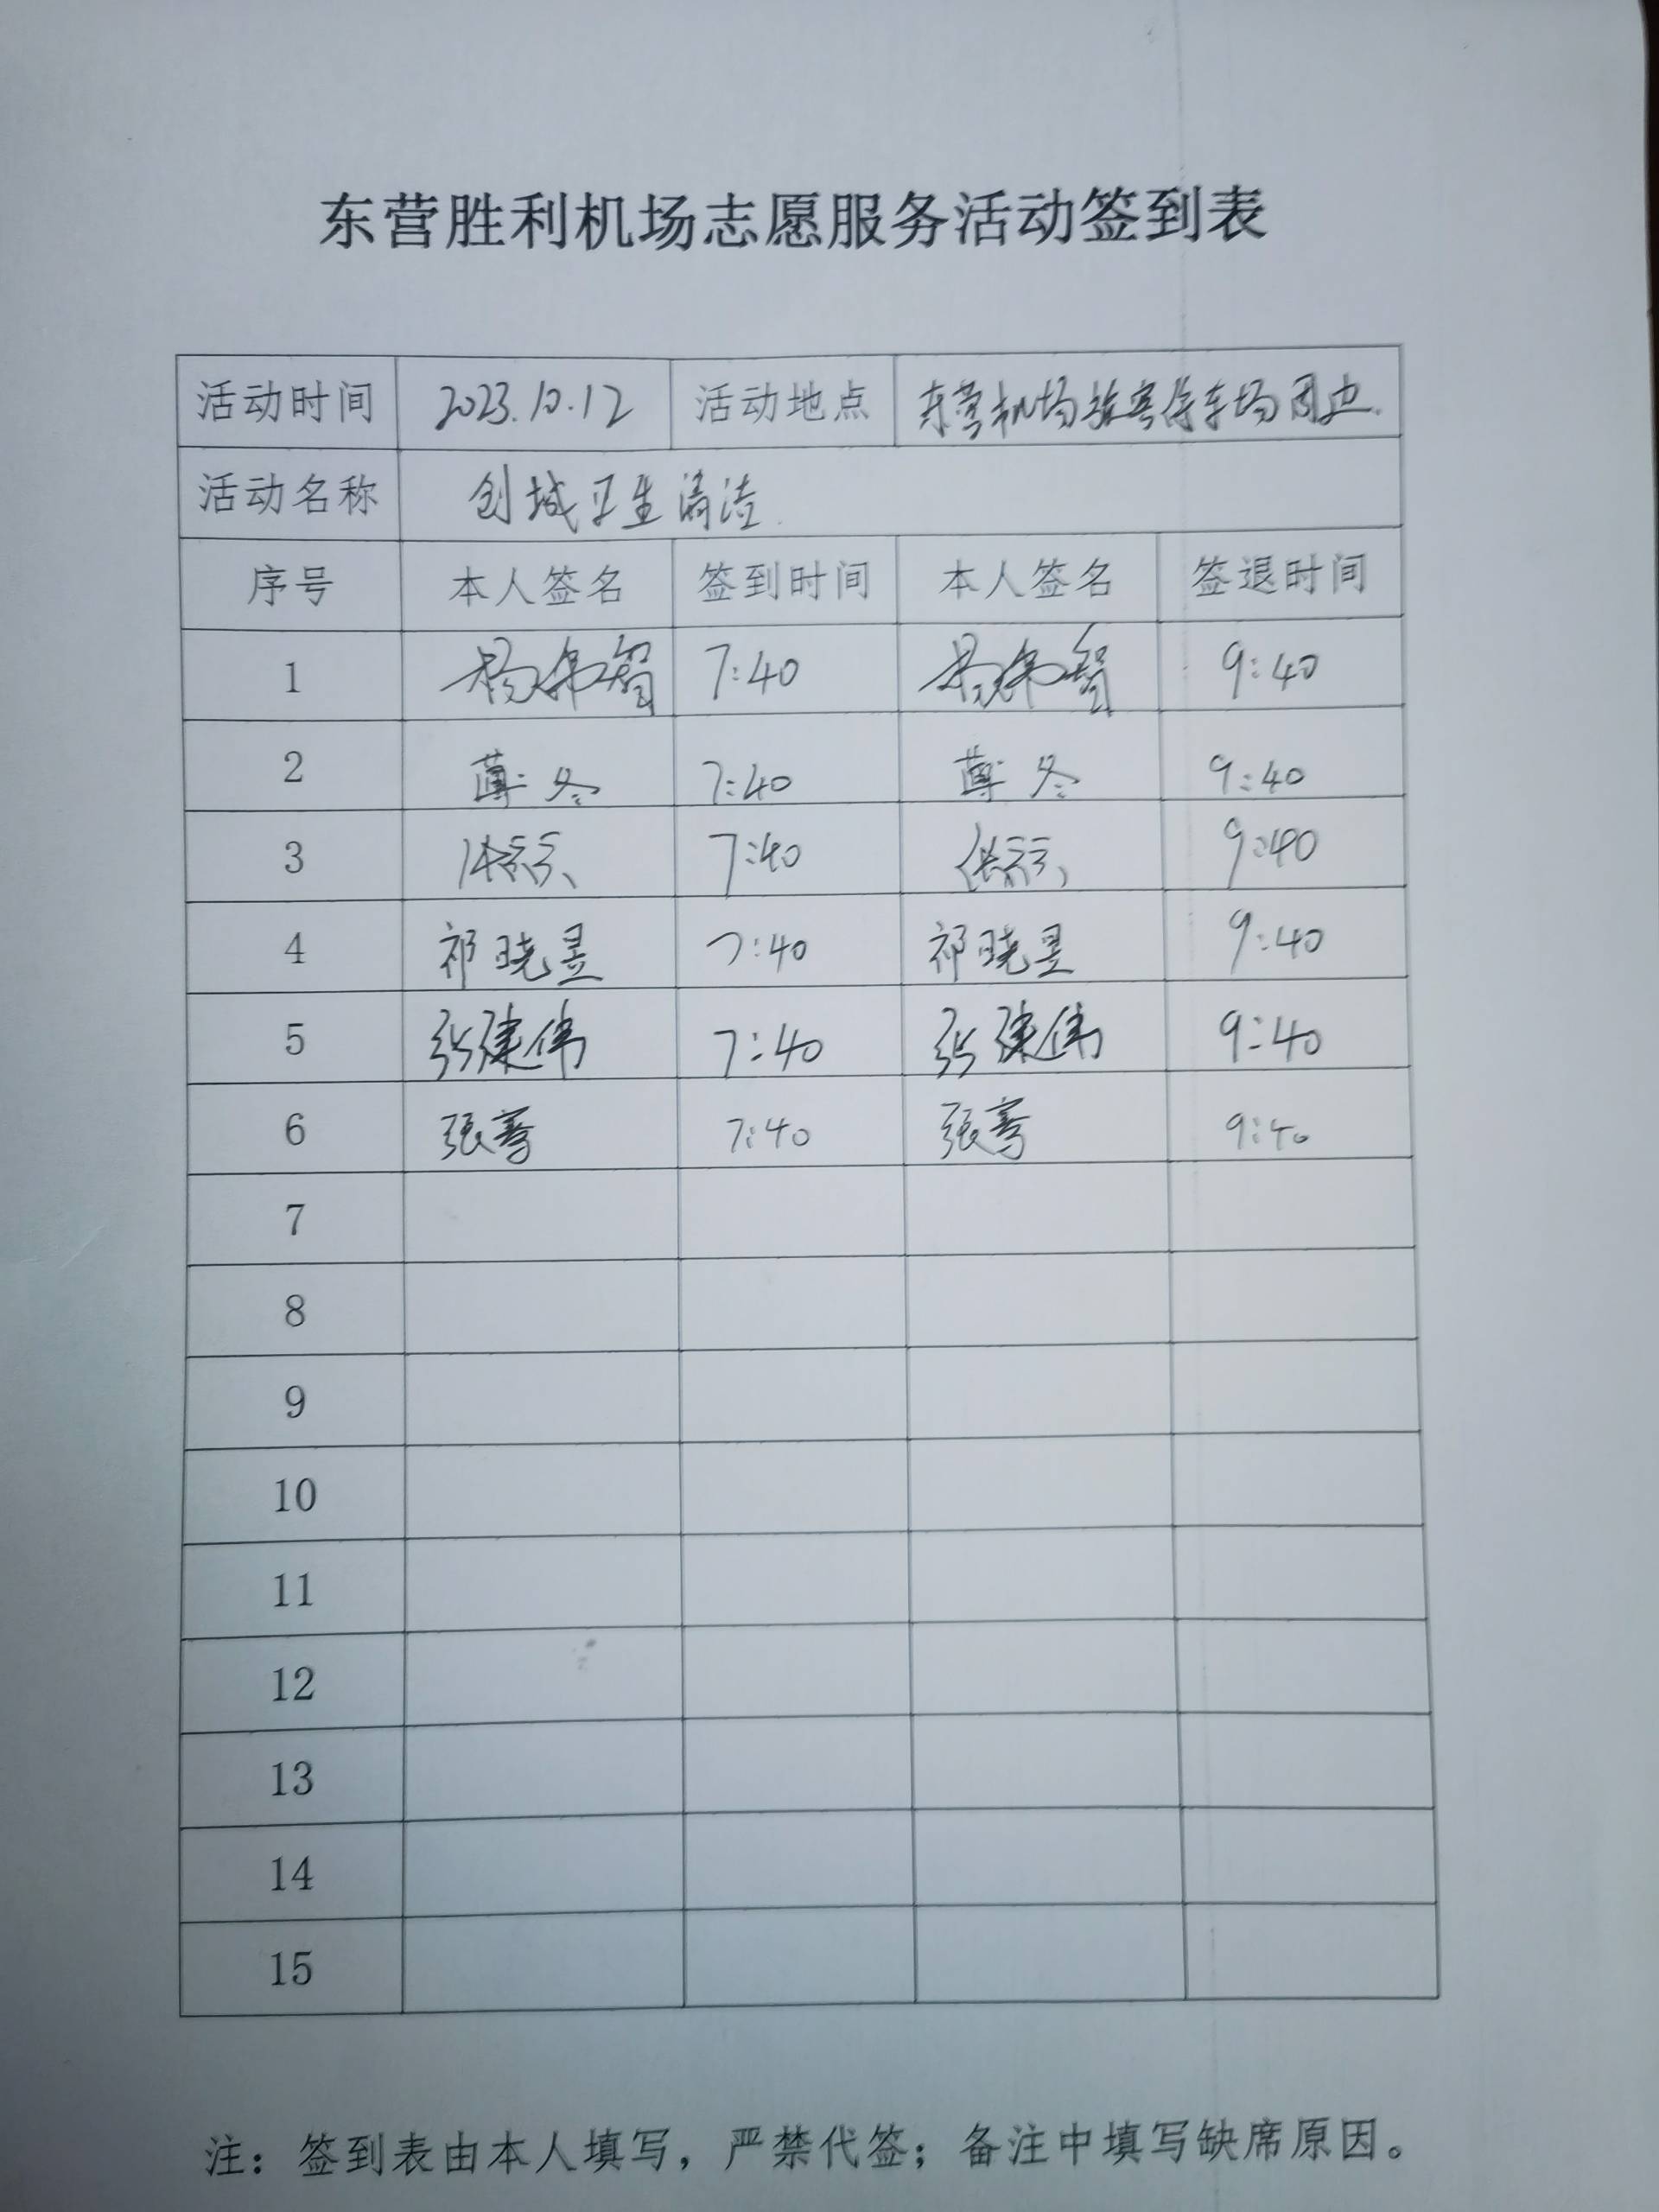 东营胜利机场志愿服务活动签到表
活动时间 2023.10.12 活动地点 东营机场旅客停车场周边
活动名称 创城卫生清洁
序号 本人签名 签到时间 本人签名 签退时间
1 杨伟智 7:40 杨伟智 9:40
2 薄冬 7:40 薄冬 9:40
3 7:40 9:40
4 祁晓昱 7:40 祁晓昱 9:40
5 张建伟 7:40 张建伟 9:40
6 7:40 9:40
7
8
9
10
11
12
13
14
15
注：签到表由本人填写，严禁代签；备注中填写缺席原因。